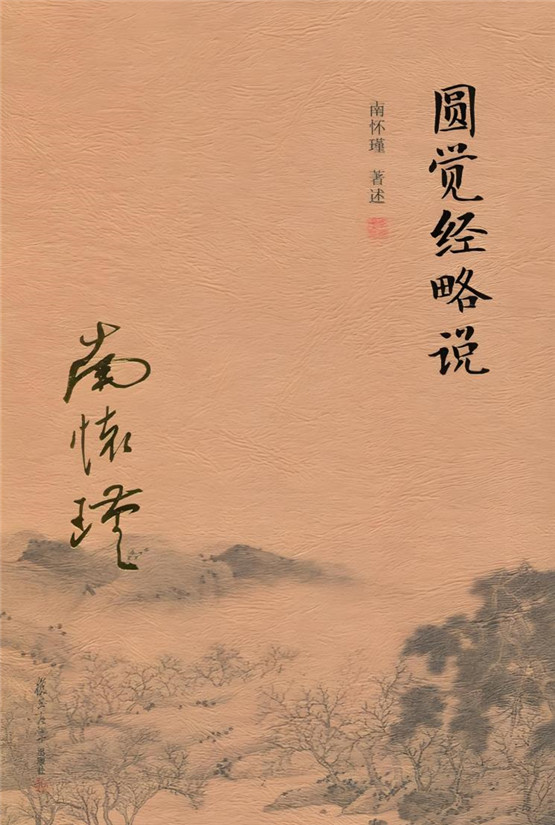 圆觉经略说
南怀瑾 著述
南懷瑾